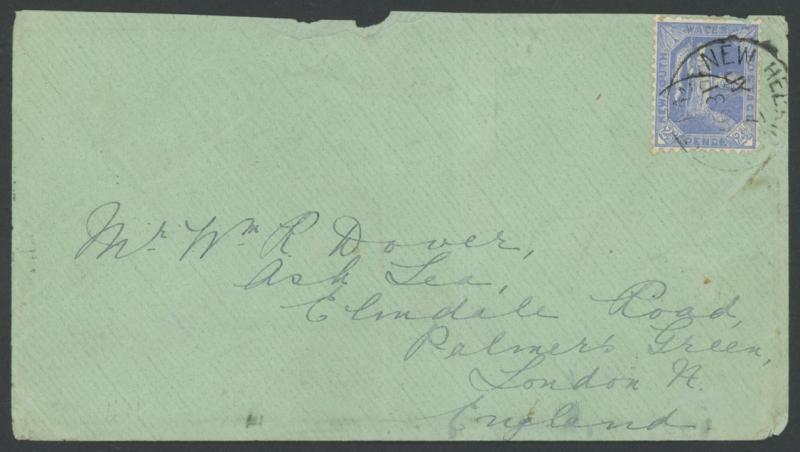 NEW SOUTH WALES POSTAGE
PENCE
NEW HEB
Mr Wm R Dover,
Ash Lea,
Elmdale Road,
Palmers Green,
London N.
England.